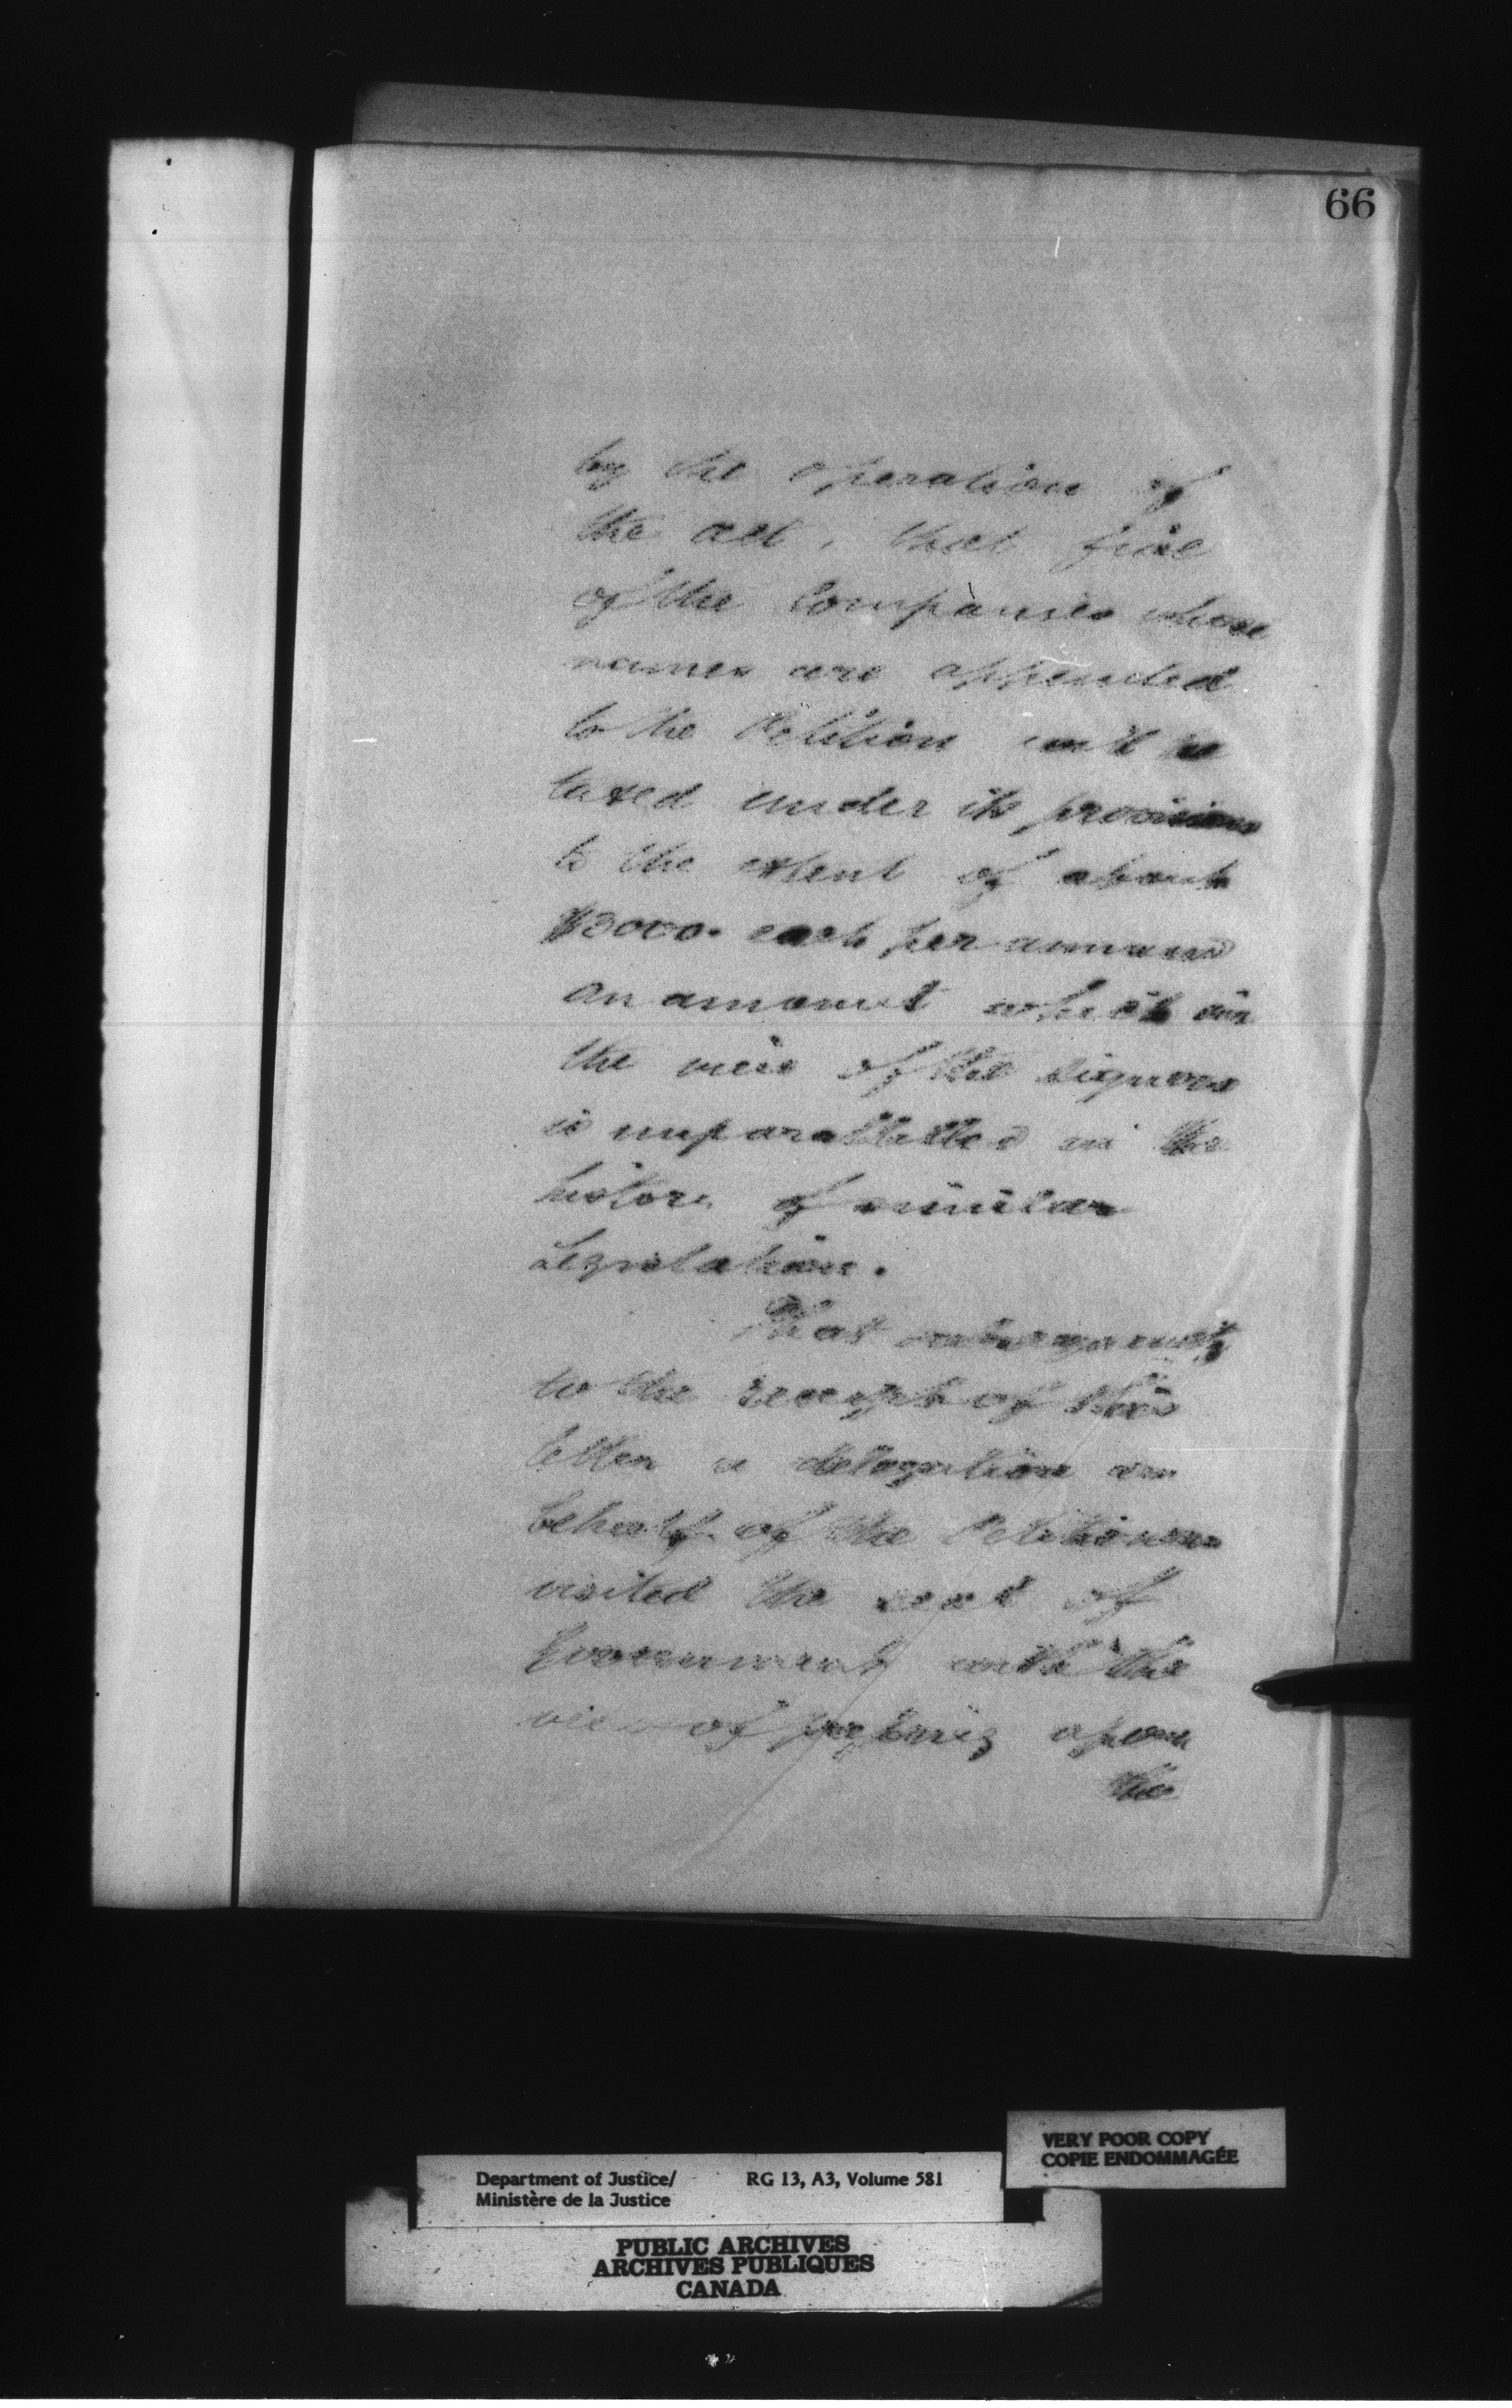 66
by the operation of
the act, that five
of the Companies whose
names are appended
to the Petition will be
taxed under its provisions
to the extent of about
$3000. each per annum
an amount which in
the view of the signers
is unparallelled in the
history of similar
Legislation.
That subsequently
to the receipt of this
letter a delegation on
behalf of the Petitioners
visited the seat of
Government with the
view of upon
the
VERY POOR COPY
COPIE ENDOMMAGÉE
Department of Justice/ RG 13, A3, Volume 581
Ministère de la Justice
PUBLIC ARCHIVES
ARCHIVES PUBLIQUES
CANADA